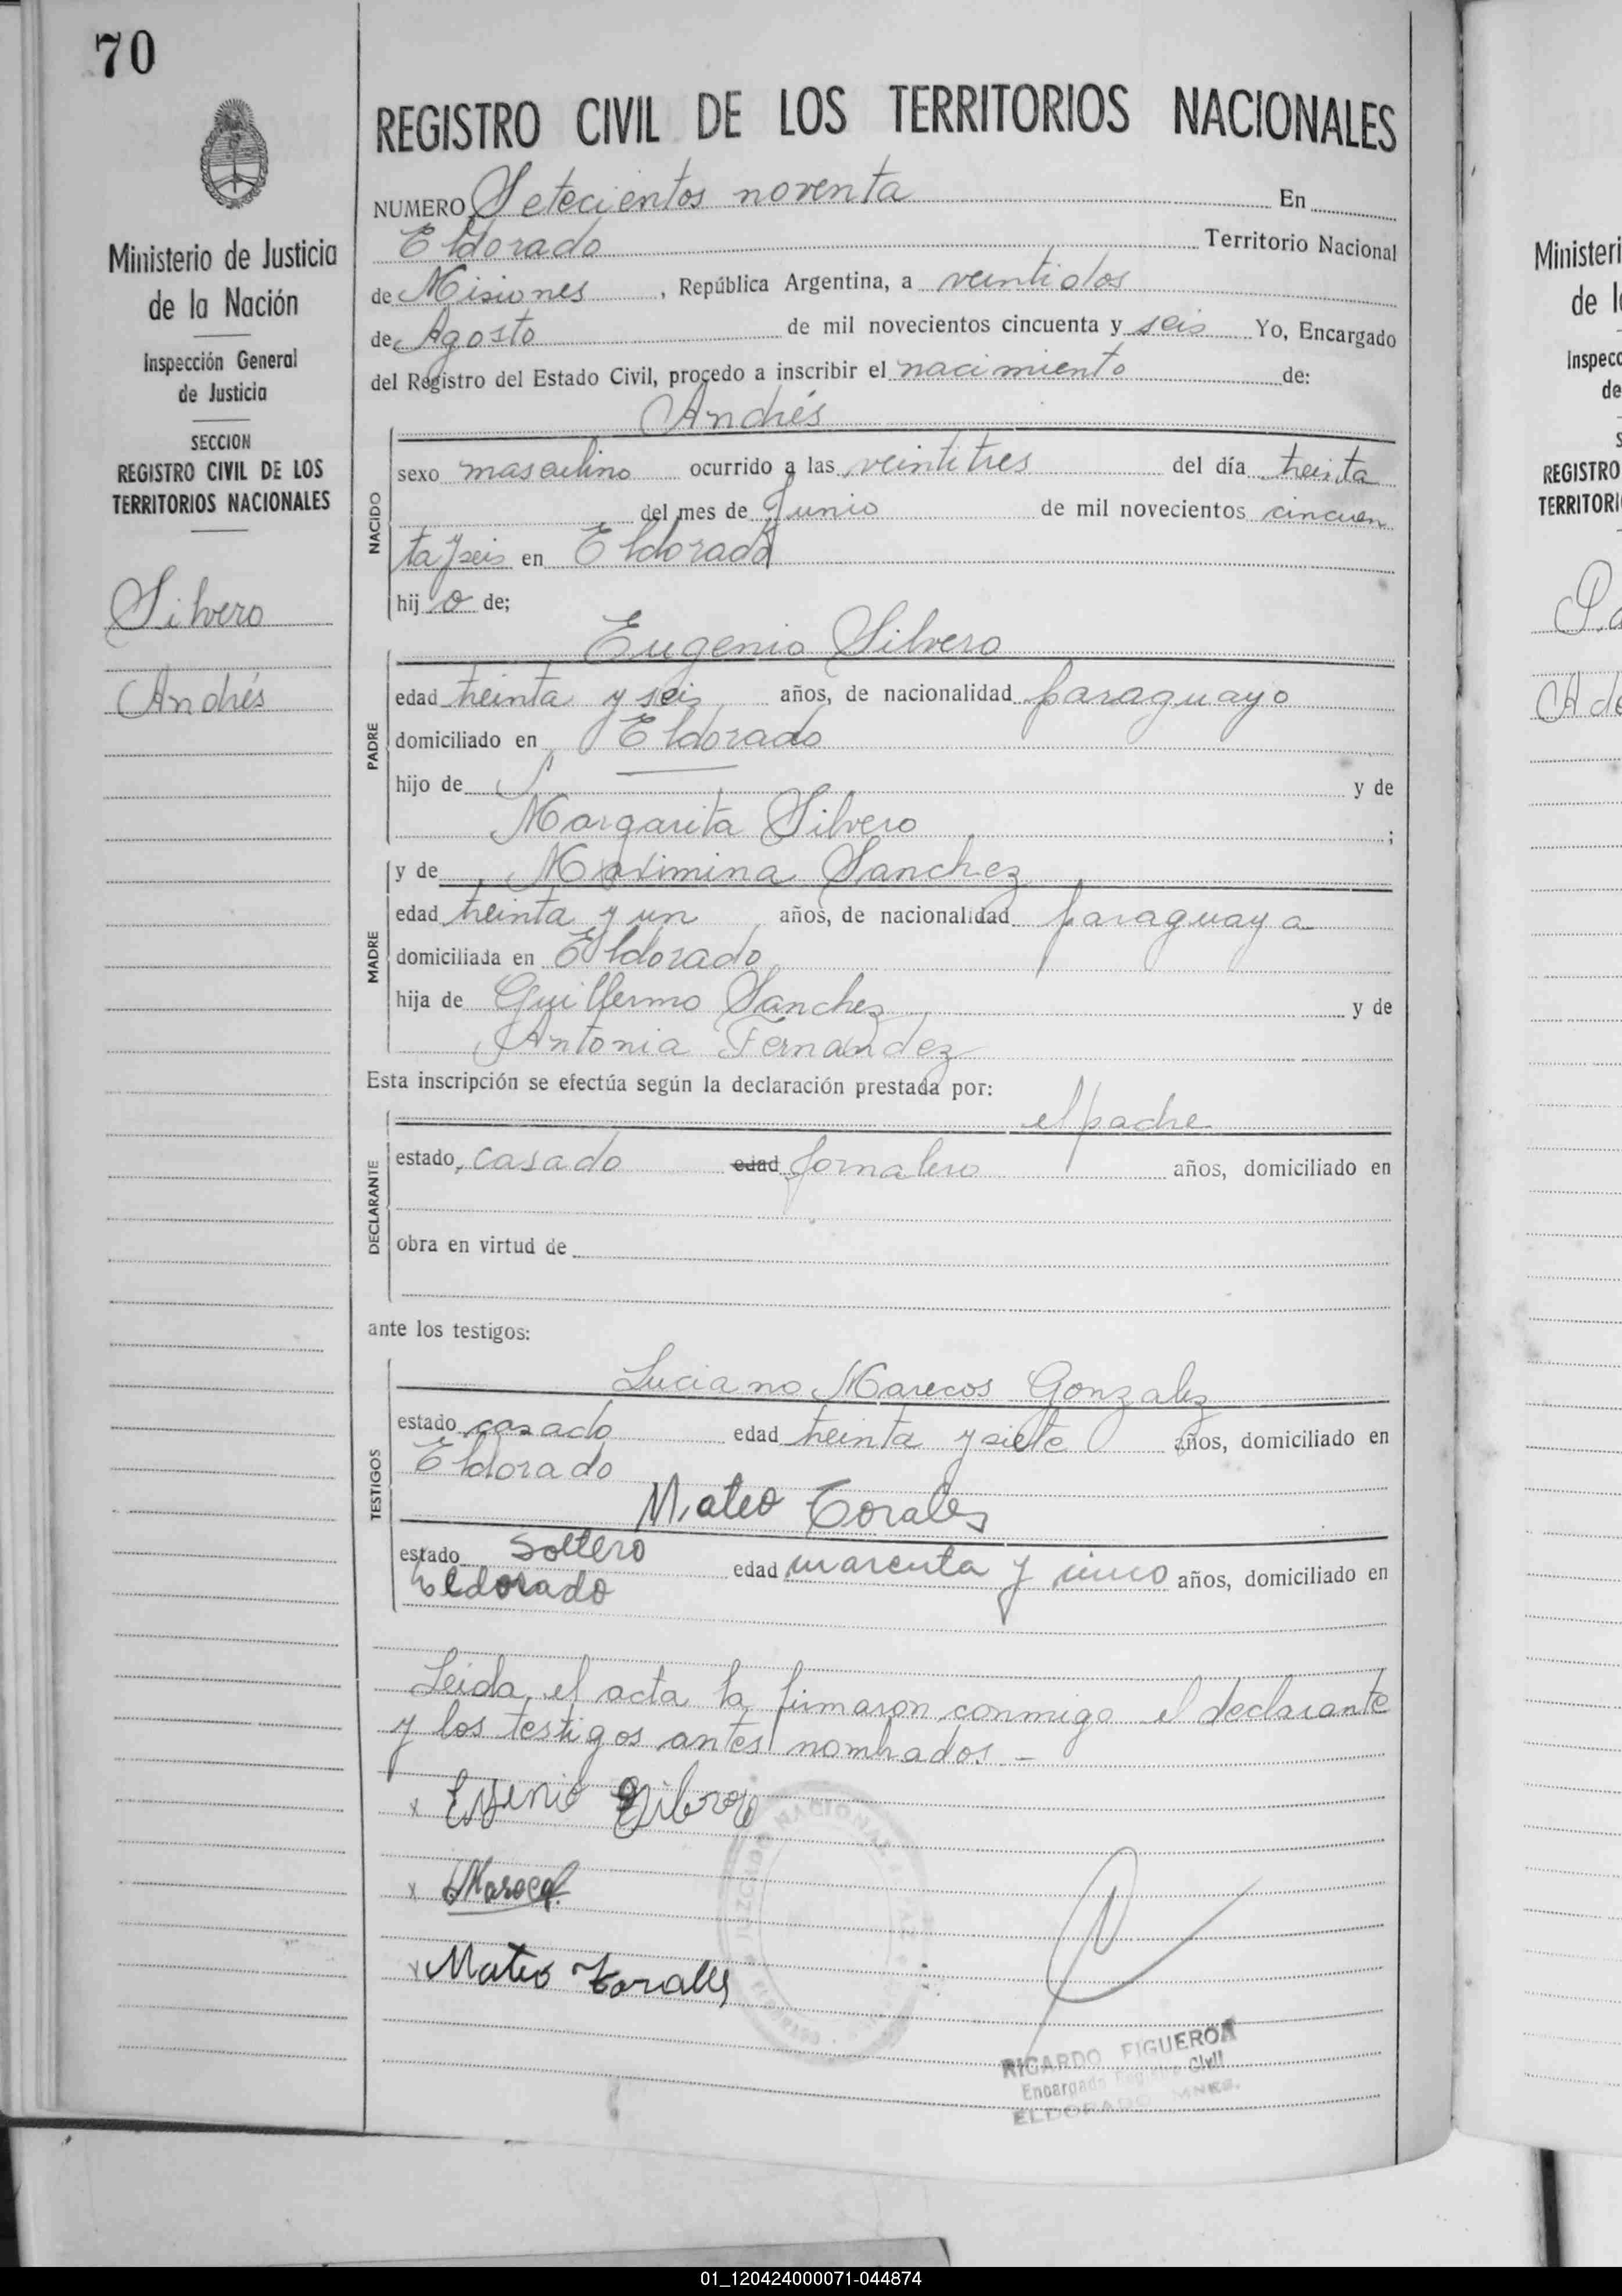 70
REGISTRO CIVIL DE LOS TERRITORIOS NACIONALES
Ministerio de Justicia
de la Nación
Inspección General
de Justicia
SECCION
REGISTRO CIVIL DE LOS
TERRITORIOS NACIONALES
Silvero
Andrés
NUMERO Setecientos noventa En
Eldorado Territorio Nacional
de Misiones, República Argentina, a veintidos
de Agosto de mil novecientos cincuenta y seis Yo, Encargado
del Registro del Estado Civil, procedo a inscribir el nacimiento de:
Andrés
NACIDO
sexo masculino ocurrido a las veintitres del día treinta
del mes de Junio de mil novecientos cincuen
ta y seis en Eldorado
hijo de;
Eugenio Silvero
PADRE
edad treinta y seis años, de nacionalidad paraguayo
domiciliado en Eldorado
hijo de y de
Margarita Silvero ;
y de Maximina Sanchez
MADRE
edad treinta y un años, de nacionalidad paraguaya
domiciliada en Eldorado
hija de Guillermo Sanchez y de
Antonia Fernandez
Esta inscripción se efectúa según la declaración prestada por:
el padre
DECLARANTE
estado casado edad Jornalero años, domiciliado en
obra en virtud de
ante los testigos:
Luciano Marecos Gonzalez
TESTIGOS
estado casado edad treinta y siete años, domiciliado en
Eldorado
Mateo Torales
estado soltero edad cuarenta y cinco años, domiciliado en
Eldorado
Leida el acta la firmaron conmigo el declarante
y los testigos antes nombrados. -
x
x
x Mateo Toralles
RICARDO FIGUEROA
Encargado Registro Civil
ELDORADO MNES.
Ministeri
de l
Inspecc
de
REGISTRO
TERRITORI
01_120424000071-044874